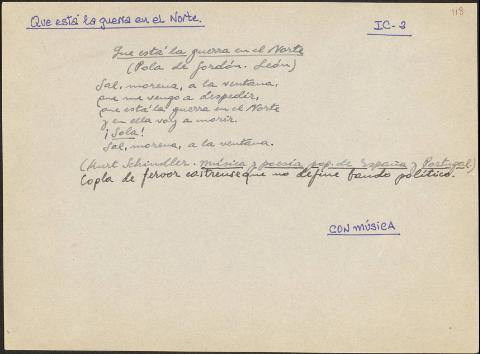 118
Que está la guerra en el Norte.
IC-3
Que está la guerra en el Norte
(Pola de Gordón. León)
Sal, morena, a la ventana,
que me vengo a despedir,
que está la guerra en el Norte
y en ella voy a morir.
¡Sola!
Sal, morena, a la ventana.
(Kurt Schindler. Música y poesía pop. de España y Portugal)
Copla de fervor castrense que no define bando político.
CON MÚSICA